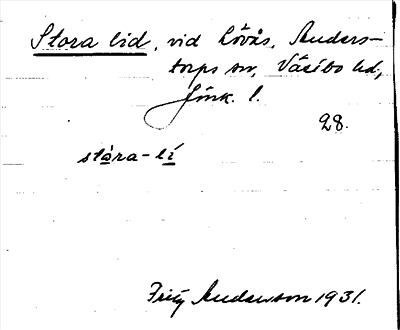 Stora lid, vid Lövås, Anders-
torps sn, Västbo hd,
Jönk. l.
28.
stòra-lí
Fritz Anderson 1931.